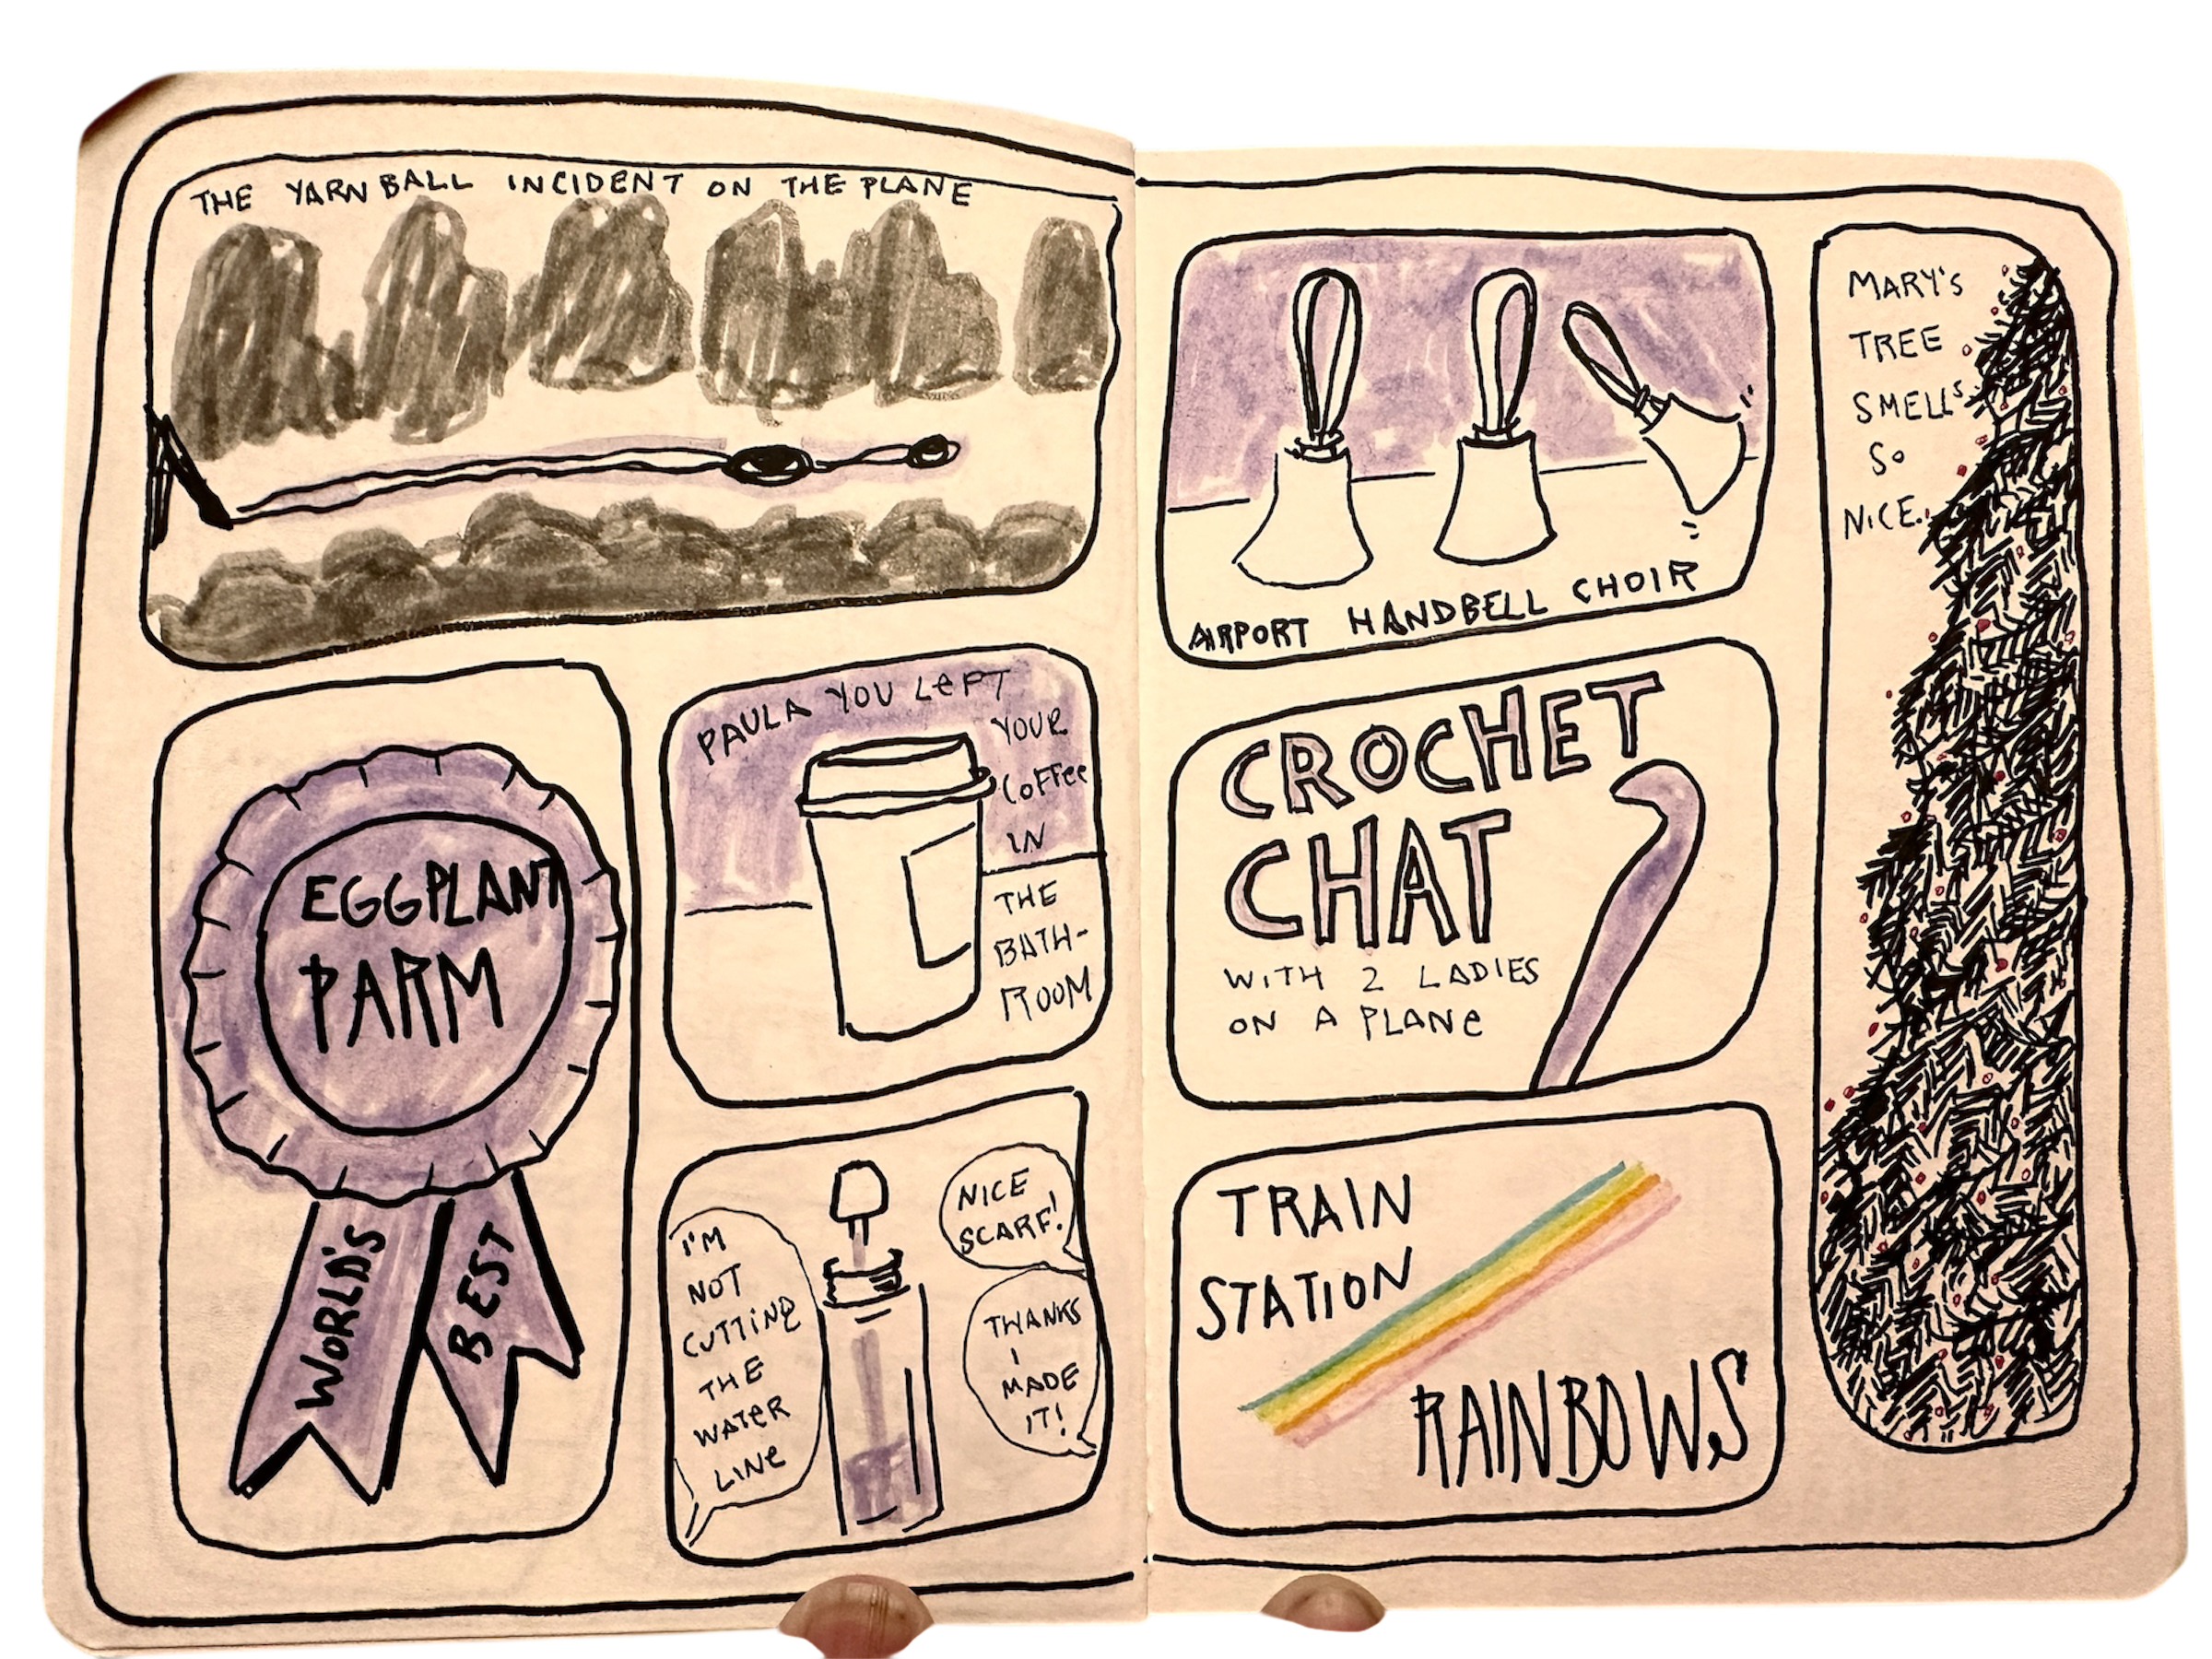 THE YARN BALL INCIDENT ON THE PLANE
EGGPLANT
PARM
WORLD'S
BEST
PAULA YOU LEFT
YOUR
COFFEE
IN
THE
BATH-
ROOM
I'M
NOT
CUTTING
THE
WATER
LINE
NICE
SCARF!
THANKS
I
MADE
IT!
AIRPORT HANDBELL CHOIR
CROCHET
CHAT
WITH 2 LADIES
ON A PLANE
TRAIN
STATION
RAINBOWS
MARY'S
TREE
SMELLS
SO
NICE.